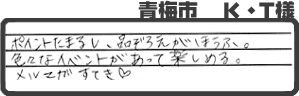 青梅市 K・T様
ポイントたまるし、品ぞろえがほうふ。
色々なイベントがあって楽しめる。
メルマがすてき♡